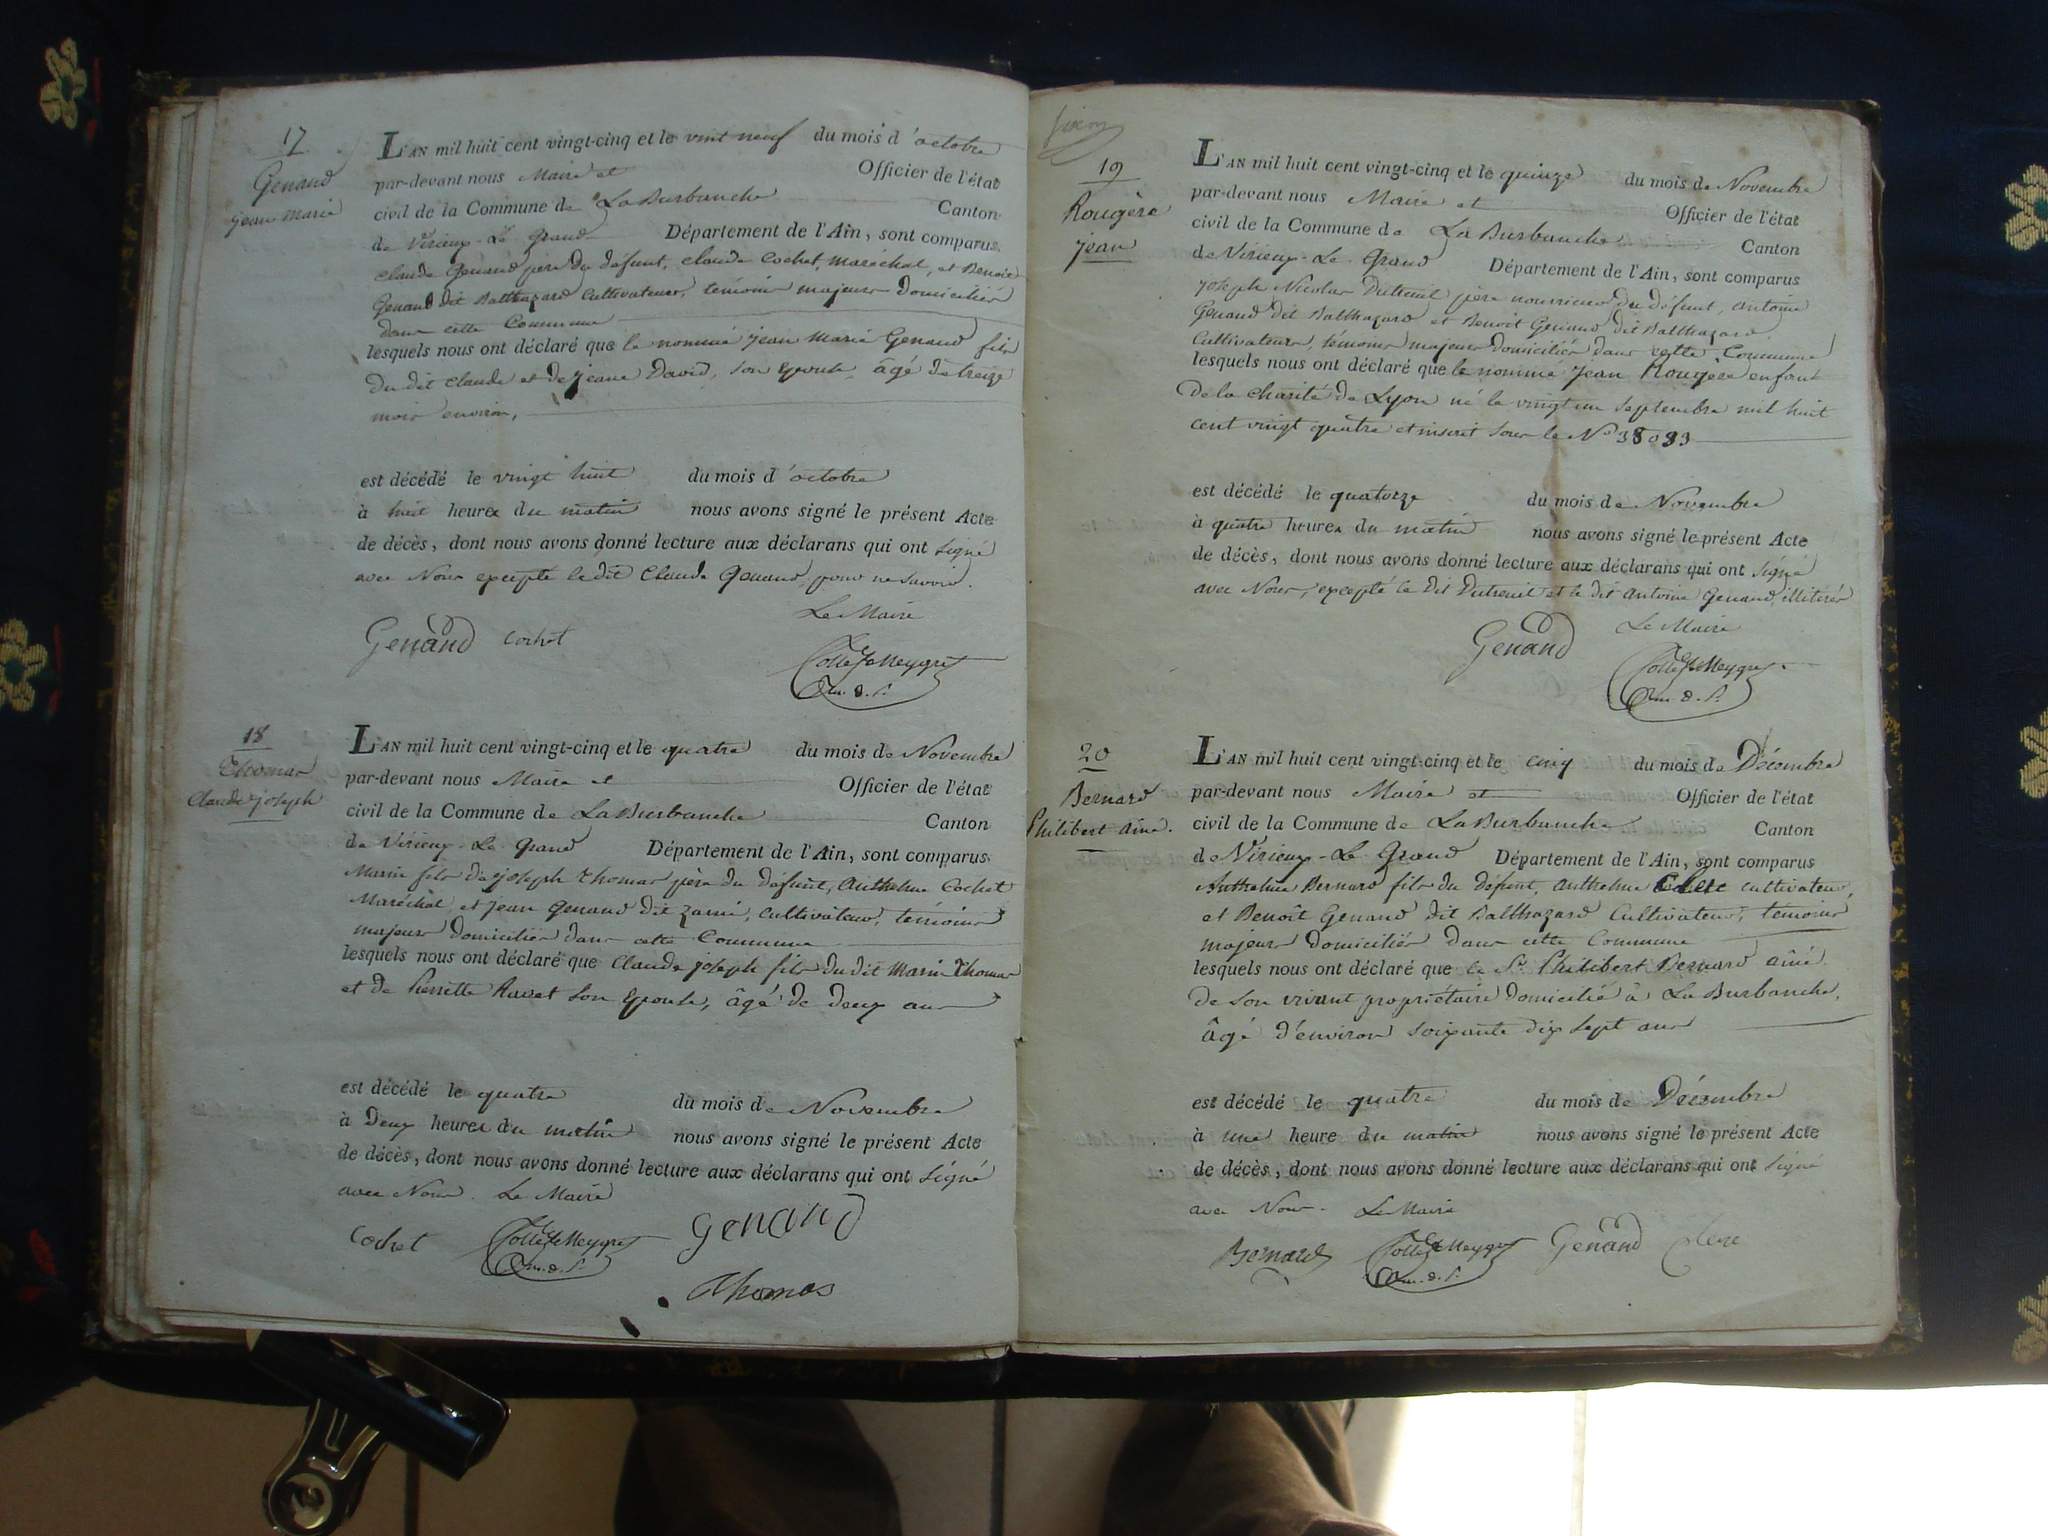 17
Genand
jean Marie
L'AN mil huit cent vingt-cinq et le vint neuf du mois d'octobre
par-devant nous Maire et Officier de l'état
civil de la Commune de La Burbanche Canton
de Virieux-Le-Grand Département de l'Ain, sont comparus
Claude Genand père du défunt, Claude Cochet, Maréchal, et Benoit
Genand dit Balthazard Cultivateur, témoins majeurs domiciliés
dans cette Commune
lesquels nous ont déclaré que le nommé jean Marie Genand fils
du dit Claude et de jeane David, son Epouse, âgé de treize
mois environ,
est décédé le vingt huit du mois d'octobre
à huit heures du matin nous avons signé le présent Acte
de décès, dont nous avons donné lecture aux déclarans qui ont signé
avec Nous excepté le dit Claude Genand, pour ne savoir.
Le Maire
Genand Cochet
18
Thomas
Claude joseph
L'AN mil huit cent vingt-cinq et le quatre du mois de Novembre
par-devant nous Maire et Officier de l'état
civil de la Commune de La Burbanche Canton
de Virieux-Le-Grand Département de l'Ain, sont comparus
Marin fils de joseph Thomas père du défunt, Anthelme Cochet
Maréchal, et jean Genand dit , cultivateur, témoins
majeurs domiciliés dans cette Commune
lesquels nous ont déclaré que Claude joseph fils du dit Marin Thomas
et de Pierrette Ravet son Epouse, âgé de deux ans
est décédé le quatre du mois de Novembre
à Deux heures du matin nous avons signé le présent Acte
de décès, dont nous avons donné lecture aux déclarans qui ont signé
avec Nous. Le Maire
Cochet Genand
Thomas
19
Rougère
jean
L'AN mil huit cent vingt-cinq et le quinze du mois de Novembre
par-devant nous Maire et Officier de l'état
civil de la Commune de La Burbanche Canton
de Virieux-Le-Grand Département de l'Ain, sont comparus
joseph Nicolas Dutreuil père nourricier du défunt, Antoine
Genand dit Balthazard et Benoît Genand dit Balthazard
Cultivateurs, témoins majeurs domiciliés dans cette Commune
lesquels nous ont déclaré que le nommé jean Rougère enfant
de la charité de Lyon né le vingt un septembre mil huit
cent vingt quatre et inscrit sous le N°
est décédé le quatorze du mois de Novembre
à quatre heures du matin nous avons signé le présent Acte
de décès, dont nous avons donné lecture aux déclarans qui ont signé
avec Nous, excepté le dit Dutreuil et le dit Antoine Genand, illitérés
Le Maire
Genand
20
Bernard
Philibert aîné.
L'AN mil huit cent vingt-cinq et le cinq du mois de Décembre
par-devant nous Maire et Officier de l'état
civil de la Commune de La Burbanche Canton
de Virieux-Le-Grand Département de l'Ain, sont comparus
Anthelme Bernard fils du défunt, Anthelme Clerc cultivateur,
et Benoît Genand dit Balthazard Cultivateur, témoins
majeurs domiciliés dans cette Commune
lesquels nous ont déclaré que le Sr Philibert Bernard aîné
de son vivant propriétaire domicilié à La Burbanche,
âgé d'environ soixante dix sept ans
est décédé le quatre du mois de Décembre
à une heure du matin nous avons signé le présent Acte
de décès, dont nous avons donné lecture aux déclarans qui ont signé
avec Nous. Le Maire
Bernard Genand Clerc